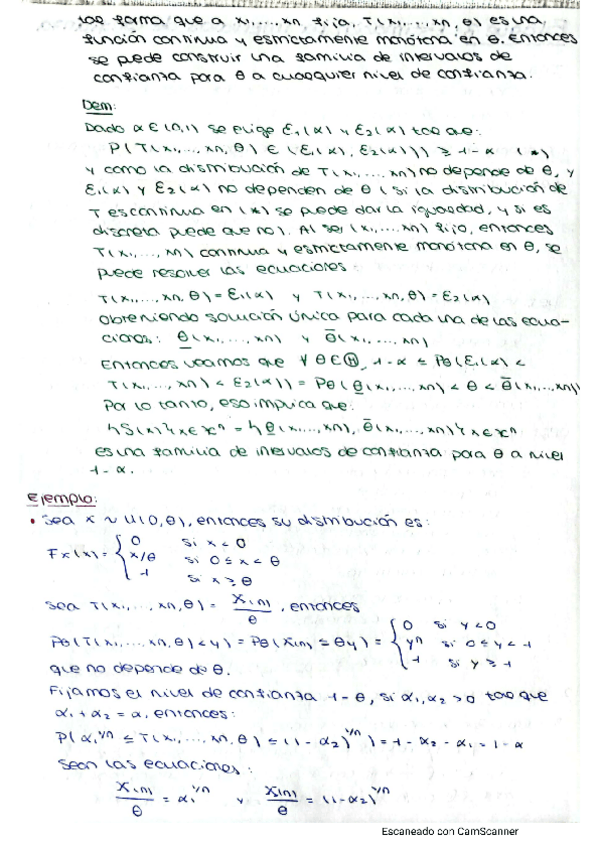 tal forma que a x1,...,xn fija, T(x1,...,xn,θ) es una
función continua y estrictamente monótona en θ. Entonces
se puede construir una familia de intervalos de
confianza para θ a cualquier nivel de confianza.
Dem:
Dado α ∈ (0,1) se elige ε1(α) y ε2(α) tal que:
P(T(x1,...,xn,θ) ∈ (ε1(α), ε2(α))) ≥ 1-α (*)
y como la distribución de T(x1,...,xn) no depende de θ, y
ε1(α) y ε2(α) no dependen de θ (si la distribución de
T es continua en (*) se puede dar la igualdad, y si es
discreta puede que no). Al ser (x1,...,xn) fijo, entonces
T(x1,...,xn) continua y estrictamente monótona en θ, se
puede resolver las ecuaciones:
T(x1,...,xn,θ) = ε1(α) y T(x1,...,xn,θ) = ε2(α)
obteniendo solución única para cada una de las ecua-
ciones: θ̲(x1,...,xn) y θ̄(x1,...,xn)
Entonces veamos que ∀ θ ∈ Θ, 1-α ≤ Pθ(ε1(α) <
T(x1,...,xn) < ε2(α)) = Pθ(θ̲(x1,...,xn) < θ < θ̄(x1,...,xn))
Por lo tanto, eso implica que:
{S(x)}x∈χⁿ = {θ̲(x1,...,xn), θ̄(x1,...,xn)}x∈χⁿ
es una familia de intervalos de confianza para θ a nivel
1-α.
Ejemplo:
• Sea X ~ U(0,θ), entonces su distribución es:
Fx(x) = { 0 si x < 0
x/θ si 0 ≤ x < θ
1 si x ≥ θ
Sea T(x1,...,xn,θ) = X(n)/θ, entonces
Pθ(T(x1,...,xn,θ) < y) = Pθ(X(n) ≤ θy) = { 0 si y < 0
yⁿ si 0 ≤ y < 1
1 si y ≥ 1
que no depende de θ.
Fijamos el nivel de confianza 1-θ, si α1, α2 > 0 tal que
α1 + α2 = α, entonces:
P(α1^1/n ≤ T(x1,...,xn,θ) ≤ (1-α2)^1/n) = 1-α2-α1 = 1-α
Sean las ecuaciones:
X(n)/θ = α1^1/n y X(n)/θ = (1-α2)^1/n
Escaneado con CamScanner